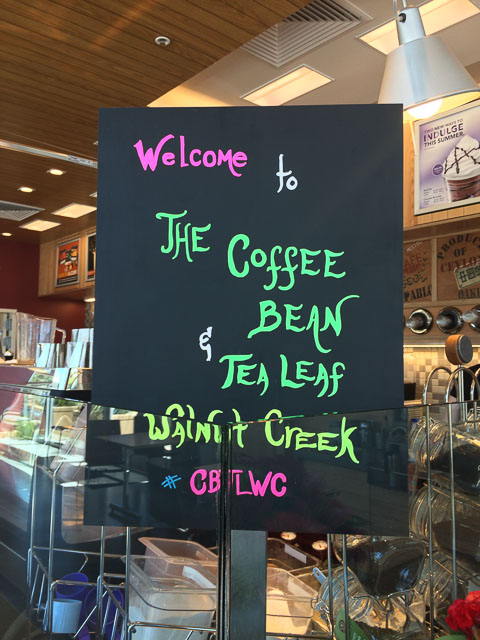 Welcome to
THE COFFEE
BEAN
& TEA LEAF
WALNUT CREEK
# CBTLWC
TWO NEW WAYS TO
INDULGE
THIS SUMMER
PRODUCT
OF
CEYLON